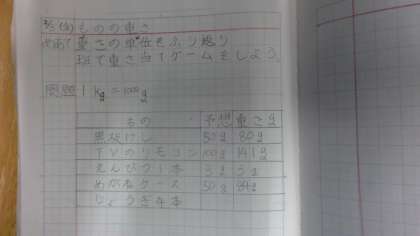 3/5(金) ものの重さ
めあて 重さの単位をふり返り
班で重さ当てゲームをしよう。
問題 1kg=1000g
もの 予想 重さg
黒板けし 50g 80g
TVのリモコン 100g 141g
えんぴつ1本 3g 5g
めがねケース 50g 84g
じょうぎ4本